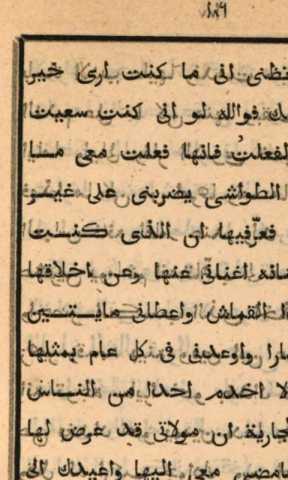 ١٨٩
فظنى انى ما كنت ارى خيرا
بك فوالله لو انى كنت سعيت
لفعلت فانها فعلت معى ما
الطواشى يضربنى على غير
فعرّفيها ان الذى كنت
اغنانى عنها وعن اخلاقها
القماش واعطانى مايتين
واوعدنى فى كل عام بمثلها
لا اخدم احدا من الناس
لجارية ان مولاتى قد عرض لها
معى اليها واعيدك الى